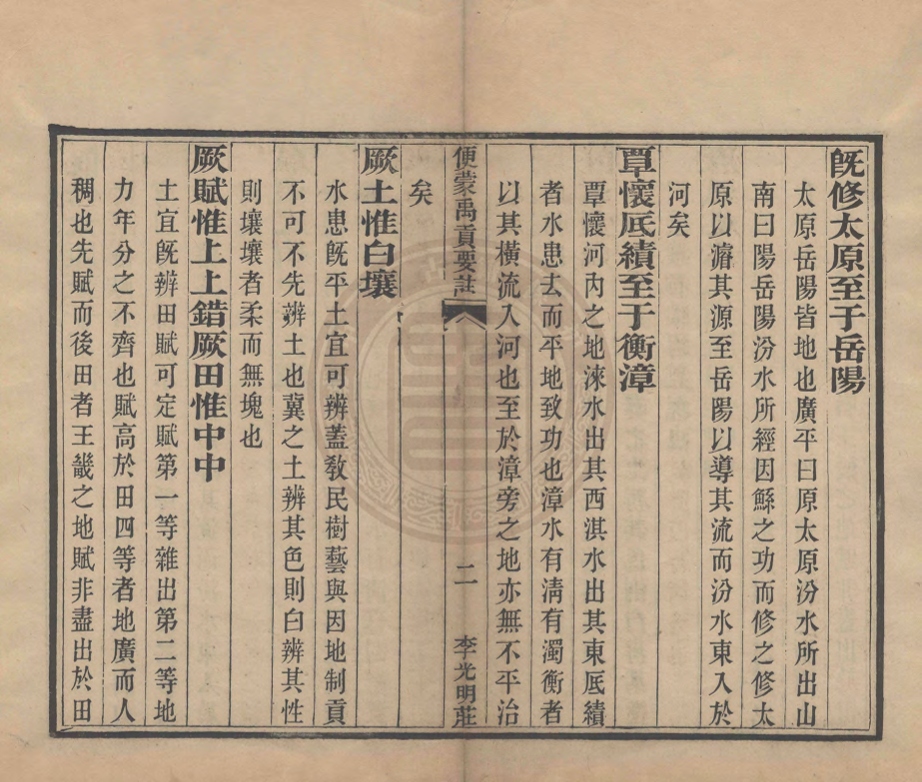 既修太原至于岳陽
太原岳陽皆地也廣平曰原太原汾水所出山
南曰陽岳陽汾水所經因鯀之功而修之修太
原以濬其源至岳陽以導其流而汾水東入於
河矣
覃懷厎績至于衡漳
覃懷河內之地淶水出其西淇水出其東厎績
者水患去而平地致功也漳水有淸有濁衡者
以其橫流入河也至於漳旁之地亦無不平治
便蒙禹貢要註
二
李光明莊
矣
厥土惟白壤
水患旣平土宜可辨蓋敎民樹藝與因地制貢
不可不先辨土也冀之土辨其色則白辨其性
則壤壤者柔而無塊也
厥賦惟上上錯厥田惟中中
土宜旣辨田賦可定賦第一等雜出第二等地
力年分之不齊也賦高於田四等者地廣而人
稠也先賦而後田者王畿之地賦非盡出於田